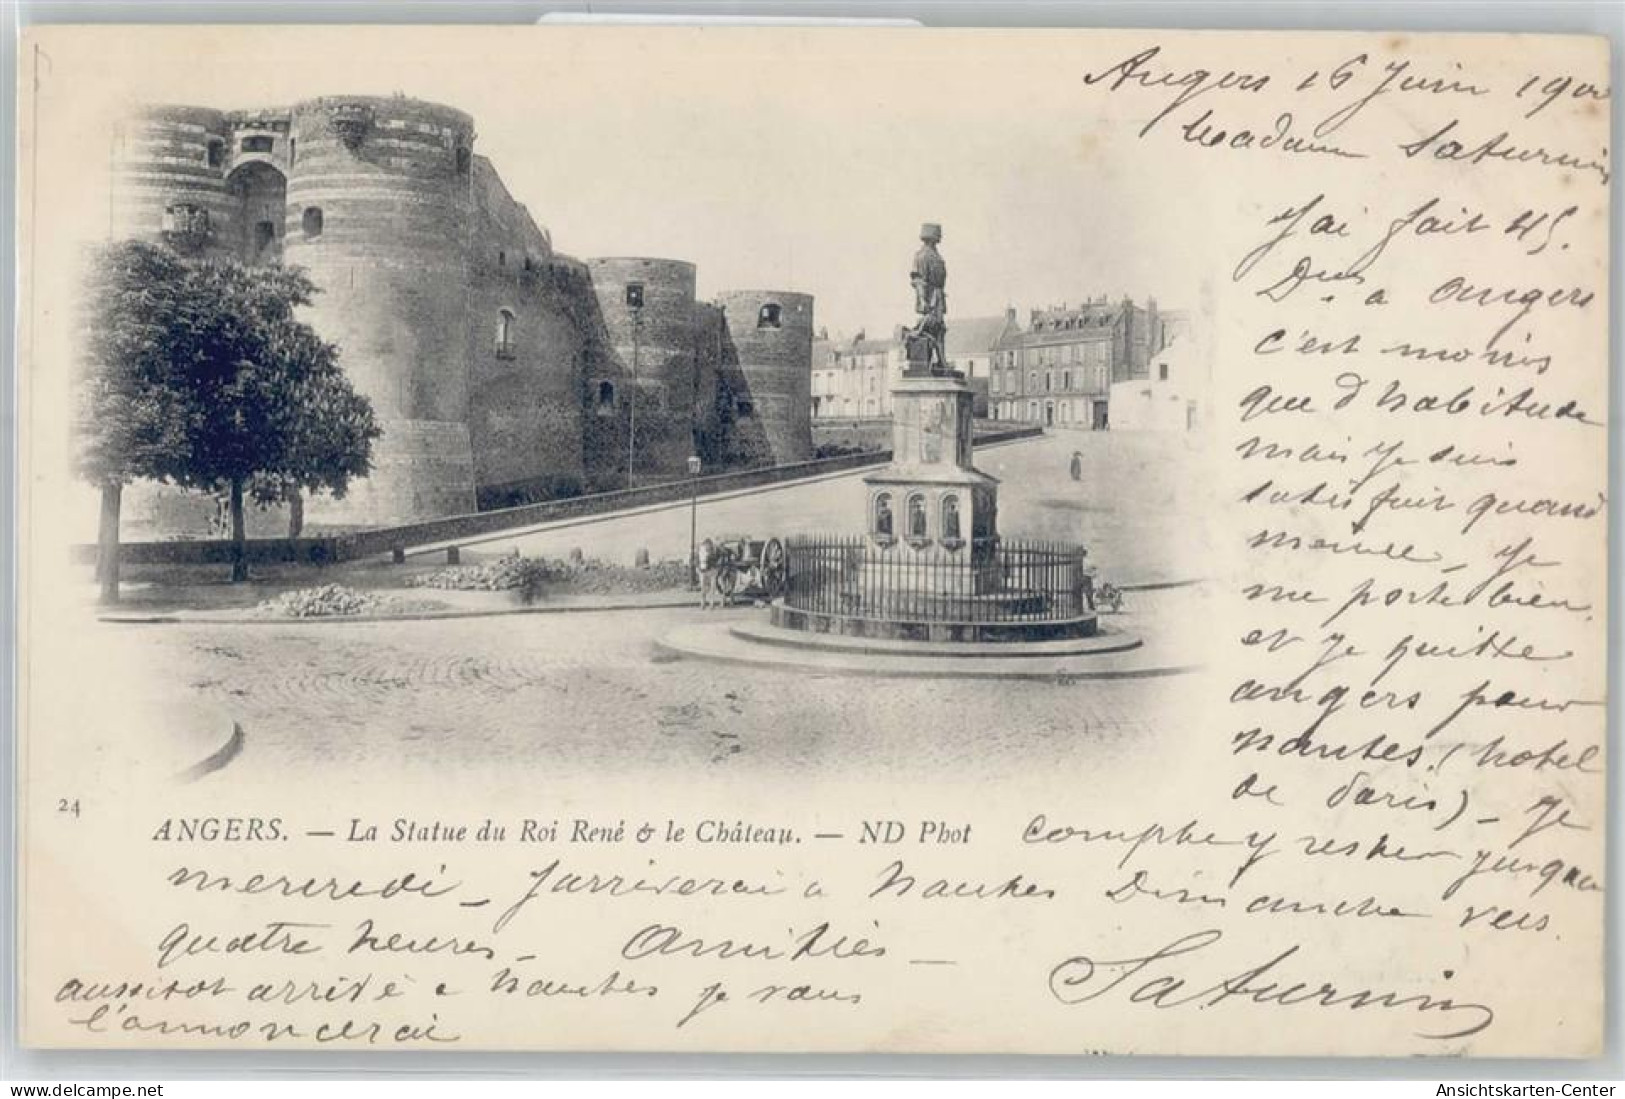 Angers 16 Juin 1900
Madame Saturnin
J'ai fait 45.
Dnes a Angers
c'est moins
que d'habitude
mais je suis
satisfait quand
même_ Je
me porte bien
et je quitte
angers pour
Nantes (hotel
de Paris)_ Je
24
ANGERS. — La Statue du Roi René & le Château. — ND Phot
compte y rester jusqua
mercredi_ J'arriverai a Nantes Dimanche vers
quatre heures_ Amitiés_
Saturnin
aussitot arrivé a Nantes je vous
l'annoncerai
delcampe.net
Ansichtskarten-Center